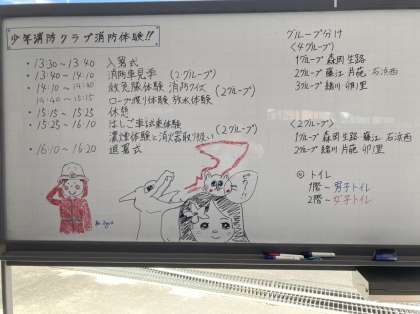 少年消防クラブ消防体験!!
・13:30～13:40 入署式
・13:40～14:10 消防車見学 (2グループ)
・14:10～14:40 放負傷体験 消防クイズ (2グループ)
14:40～15:15 ロープ渡り体験 放水体験
・15:15～15:25 休憩
・15:25～16:10 はしご車試乗体験 (2グループ)
濃煙体験と消火器取り扱い
・16:10～16:20 退署式
グループ分け
<4グループ>
1グループ 森岡 生路
2グループ 藤江 片葩 石浜西
3グループ 緒川 卯ノ里
<2グループ>
1グループ 森岡 生路 藤江 石浜西
2グループ 緒川 片葩 卯ノ里
トイレ
1階～男子トイレ
2階～女子トイレ